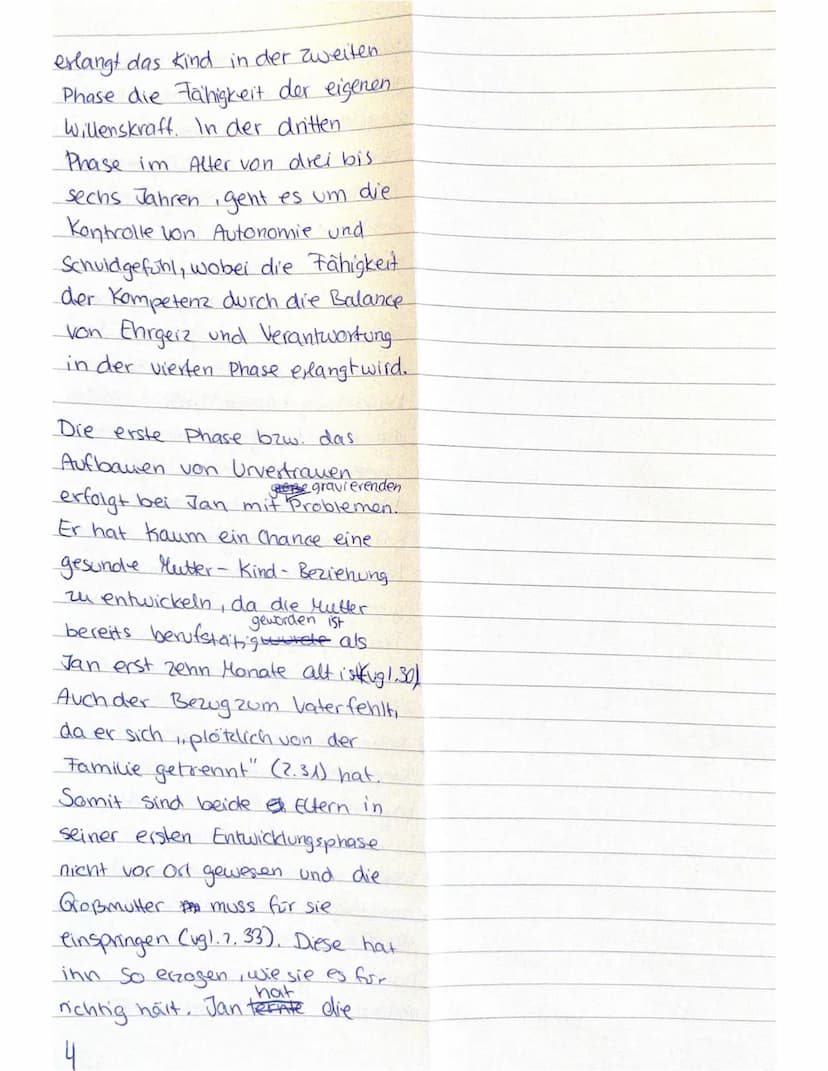 erlangt das Kind in der zweiten
Phase die Fähigkeit der eigenen
Willenskraft. In der dritten
Phase im Alter von drei bis
sechs Jahren, geht es um die
Kontrolle von Autonomie und
Schuldgefühl, wobei die Fähigkeit
der Kompetenz durch die Balance
von Ehrgeiz und Verantwortung
in der vierten Phase erlangt wird.
Die erste Phase bzw. das
Aufbauen von Urvertrauen
gravierenden
erfolgt bei Jan mit Problemen.
Er hat kaum ein Chance eine
gesunde Mutter-Kind-Beziehung
zu entwickeln, da die Mutter
geworden ist
bereits berufstätig wurde als
Jan erst zehn Monate alt ist (vgl. 30)
Auch der Bezug zum Vater fehlt,
da er sich „plötzlich von der
Familie getrennt" (Z.31) hat.
Somit sind beide Eltern in
seiner ersten Entwicklungsphase
nicht vor Ort gewesen und die
Großmutter muss für sie
einspringen (vgl. Z. 33). Diese hat
ihn so erzogen, wie sie es für
hat
richtig hält. Jan lernte die
4